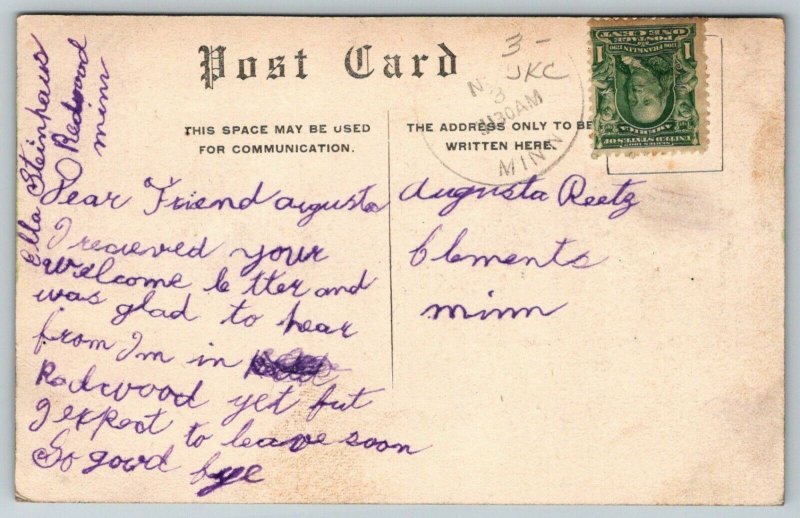 Post Card
THIS SPACE MAY BE USED
FOR COMMUNICATION.
THE ADDRESS ONLY TO BE
WRITTEN HERE.
3 -
JKC
30AM
MINN
1 1
POSTAGE
ONE CENT
FRANKLIN
UNITED STATES OF
AMERICA
Ella Steinhaus
Redwood
minn
Dear Friend augusta
I recieved your
welcome letter and
was glad to hear
from I'm in
Redwood yet but
I expect to leave soon
So good bye
Augusta Reetz
Clements
minn